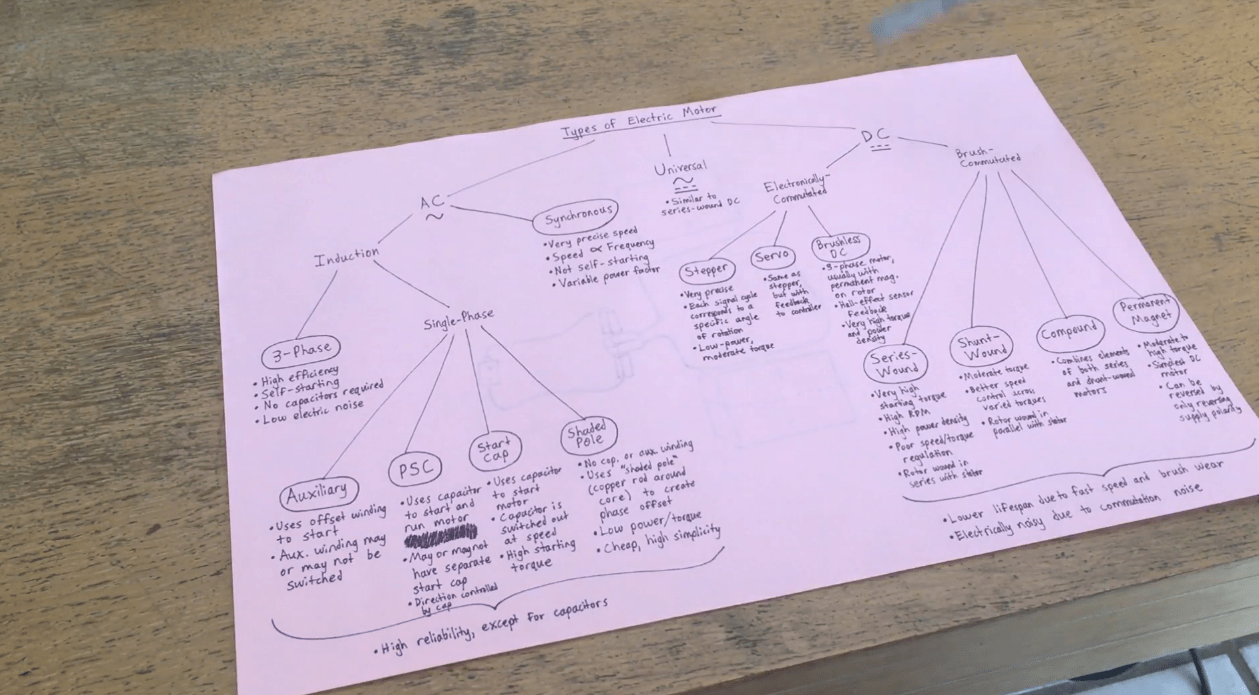 Types of Electric Motor
AC
~
Induction
3-Phase
• High efficiency
• Self-starting
• No capacitors required
• Low electric noise
Single-Phase
Auxiliary
• Uses offset winding
to start
• Aux. winding may
or may not be
switched
PSC
• Uses capacitor
to start and
run motor
• May or may not
have separate
start cap
• Direction controlled
by cap
Start
Cap
• Uses capacitor
to start
motor
• Capacitor is
switched out
at speed
• High starting
torque
Shaded
Pole
• No cap. or aux. winding
• Uses "shaded pole"
(copper rod around
core) to create
phase offset
• Low power/torque
• Cheap, high simplicity
• High reliability, except for capacitors
Synchronous
• Very precise speed
• Speed ∝ Frequency
• Not self-starting
• Variable power factor
Universal
~
• Similar to
series-wound DC
DC
Electronically-
Commutated
Stepper
• Very precise
• Each signal cycle
corresponds to a
specific angle
of rotation
• Low-power,
moderate torque
Servo
• Same as
stepper,
but with
feedback
to controller
Brushless
DC
• 3-phase motor,
usually with
permanent mag.
on rotor
• Hall-effect sensor
feedback
• Very high torque
and power
density
Brush-
Commutated
Series-
Wound
• Very high
starting torque
• High RPM
• High power density
• Poor speed/torque
regulation
• Rotor wound in
series with stator
Shunt-
Wound
• Moderate torque
• Better speed
control across
varied torques
• Rotor wound in
parallel with stator
Compound
• Combines elements
of both series
and shunt-wound
motors
Permanent
Magnet
• Moderate to
high torque
• Simplest DC
motor
• Can be
reversed by
only reversing
supply polarity
• Lower lifespan due to fast speed and brush wear
• Electrically noisy due to commutation noise